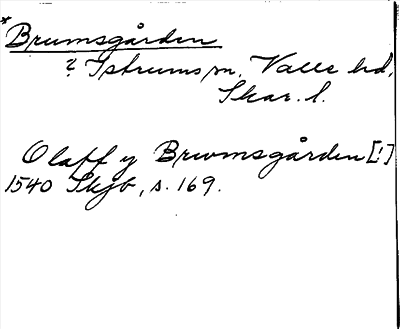 *Brumsgården
? Istrums sn, Valle hd,
Skar. l.
Olaff y Brwmsgården [!]
1540 Skjb, s. 169.